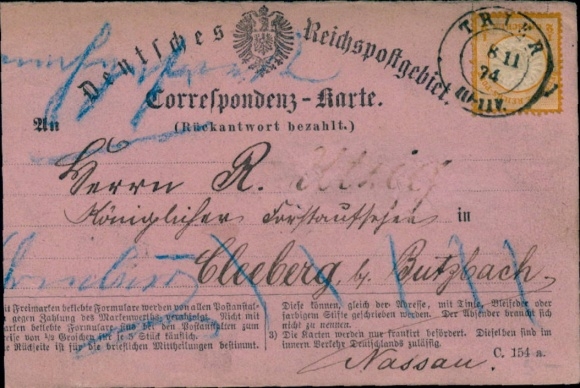 Deutsches Reichspostgebiet.
TRIER
8 11
74
Correspondenz-Karte.
An
(Rückantwort bezahlt.)
Herrn R.
Königlicher Forstaufseher in
Cleeberg b. Butzbach.
it Freimarken beklebte Formulare werden von allen Postanstal-
gegen Zahlung des Markenwerthes verabfolgt. Nicht mit
arken beklebte Formulare sind bei den Postanstalten zum
reise von ½ Groschen für je 5 Stück käuflich.
e Rückseite ist für die brieflichen Mittheilungen bestimmt.
Diese können, gleich der Adresse, mit Tinte, Bleifeder oder
farbigem Stifte geschrieben werden. Der Absender braucht sich
nicht zu nennen.
3) Die Karten werden nur frankirt befördert. Dieselben sind im
inneren Verkehr Deutschlands zulässig.
C. 154 a.
Nassau.